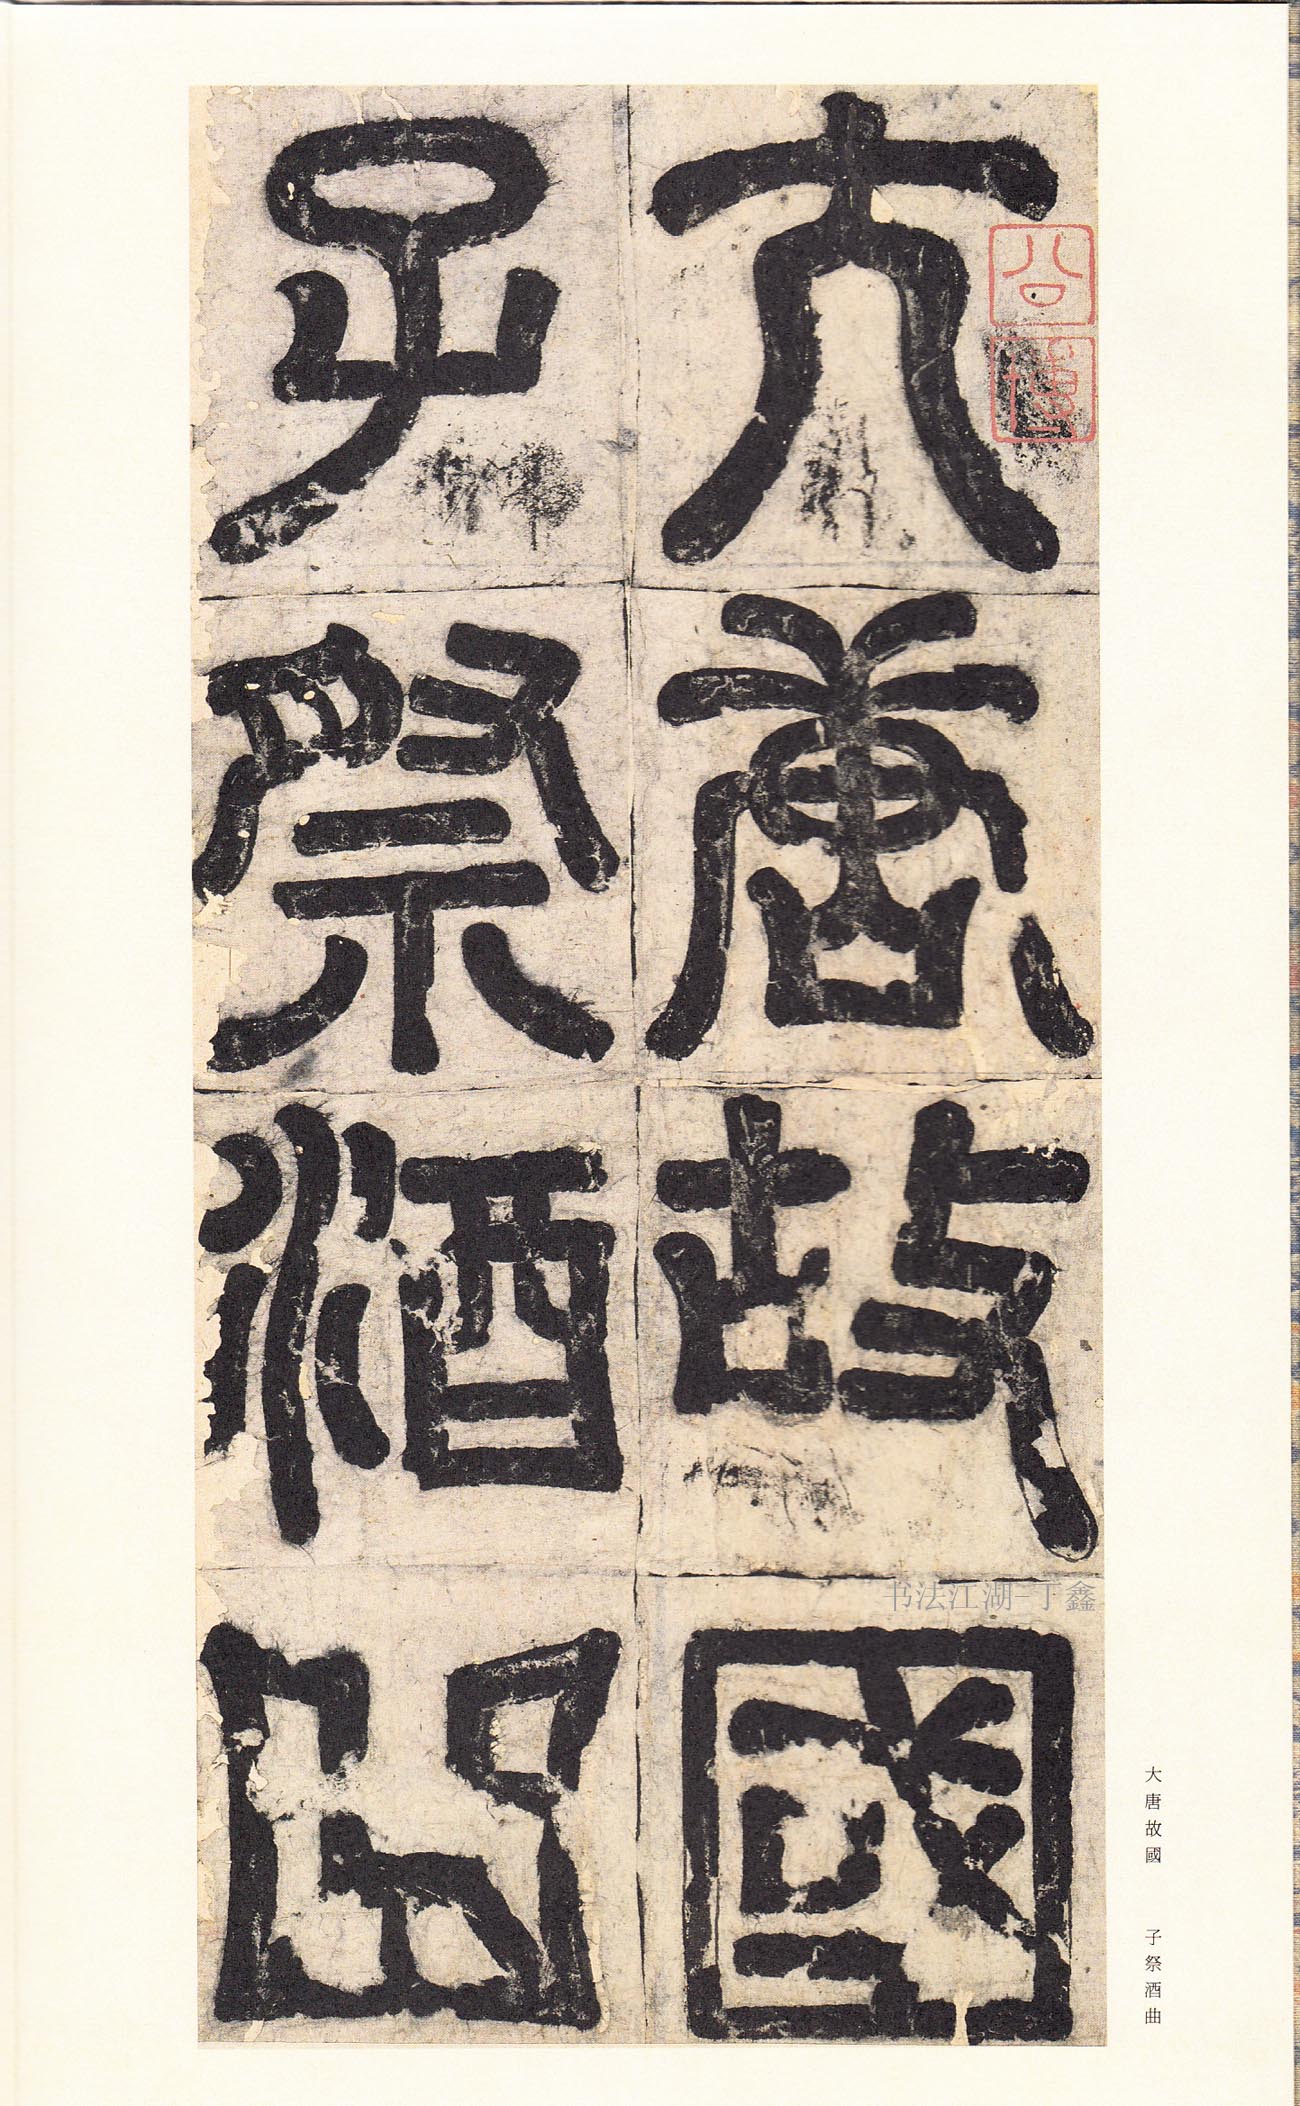 大唐故國
子祭酒曲
公博
书法江湖-丁鑫
大唐故國　子祭酒曲